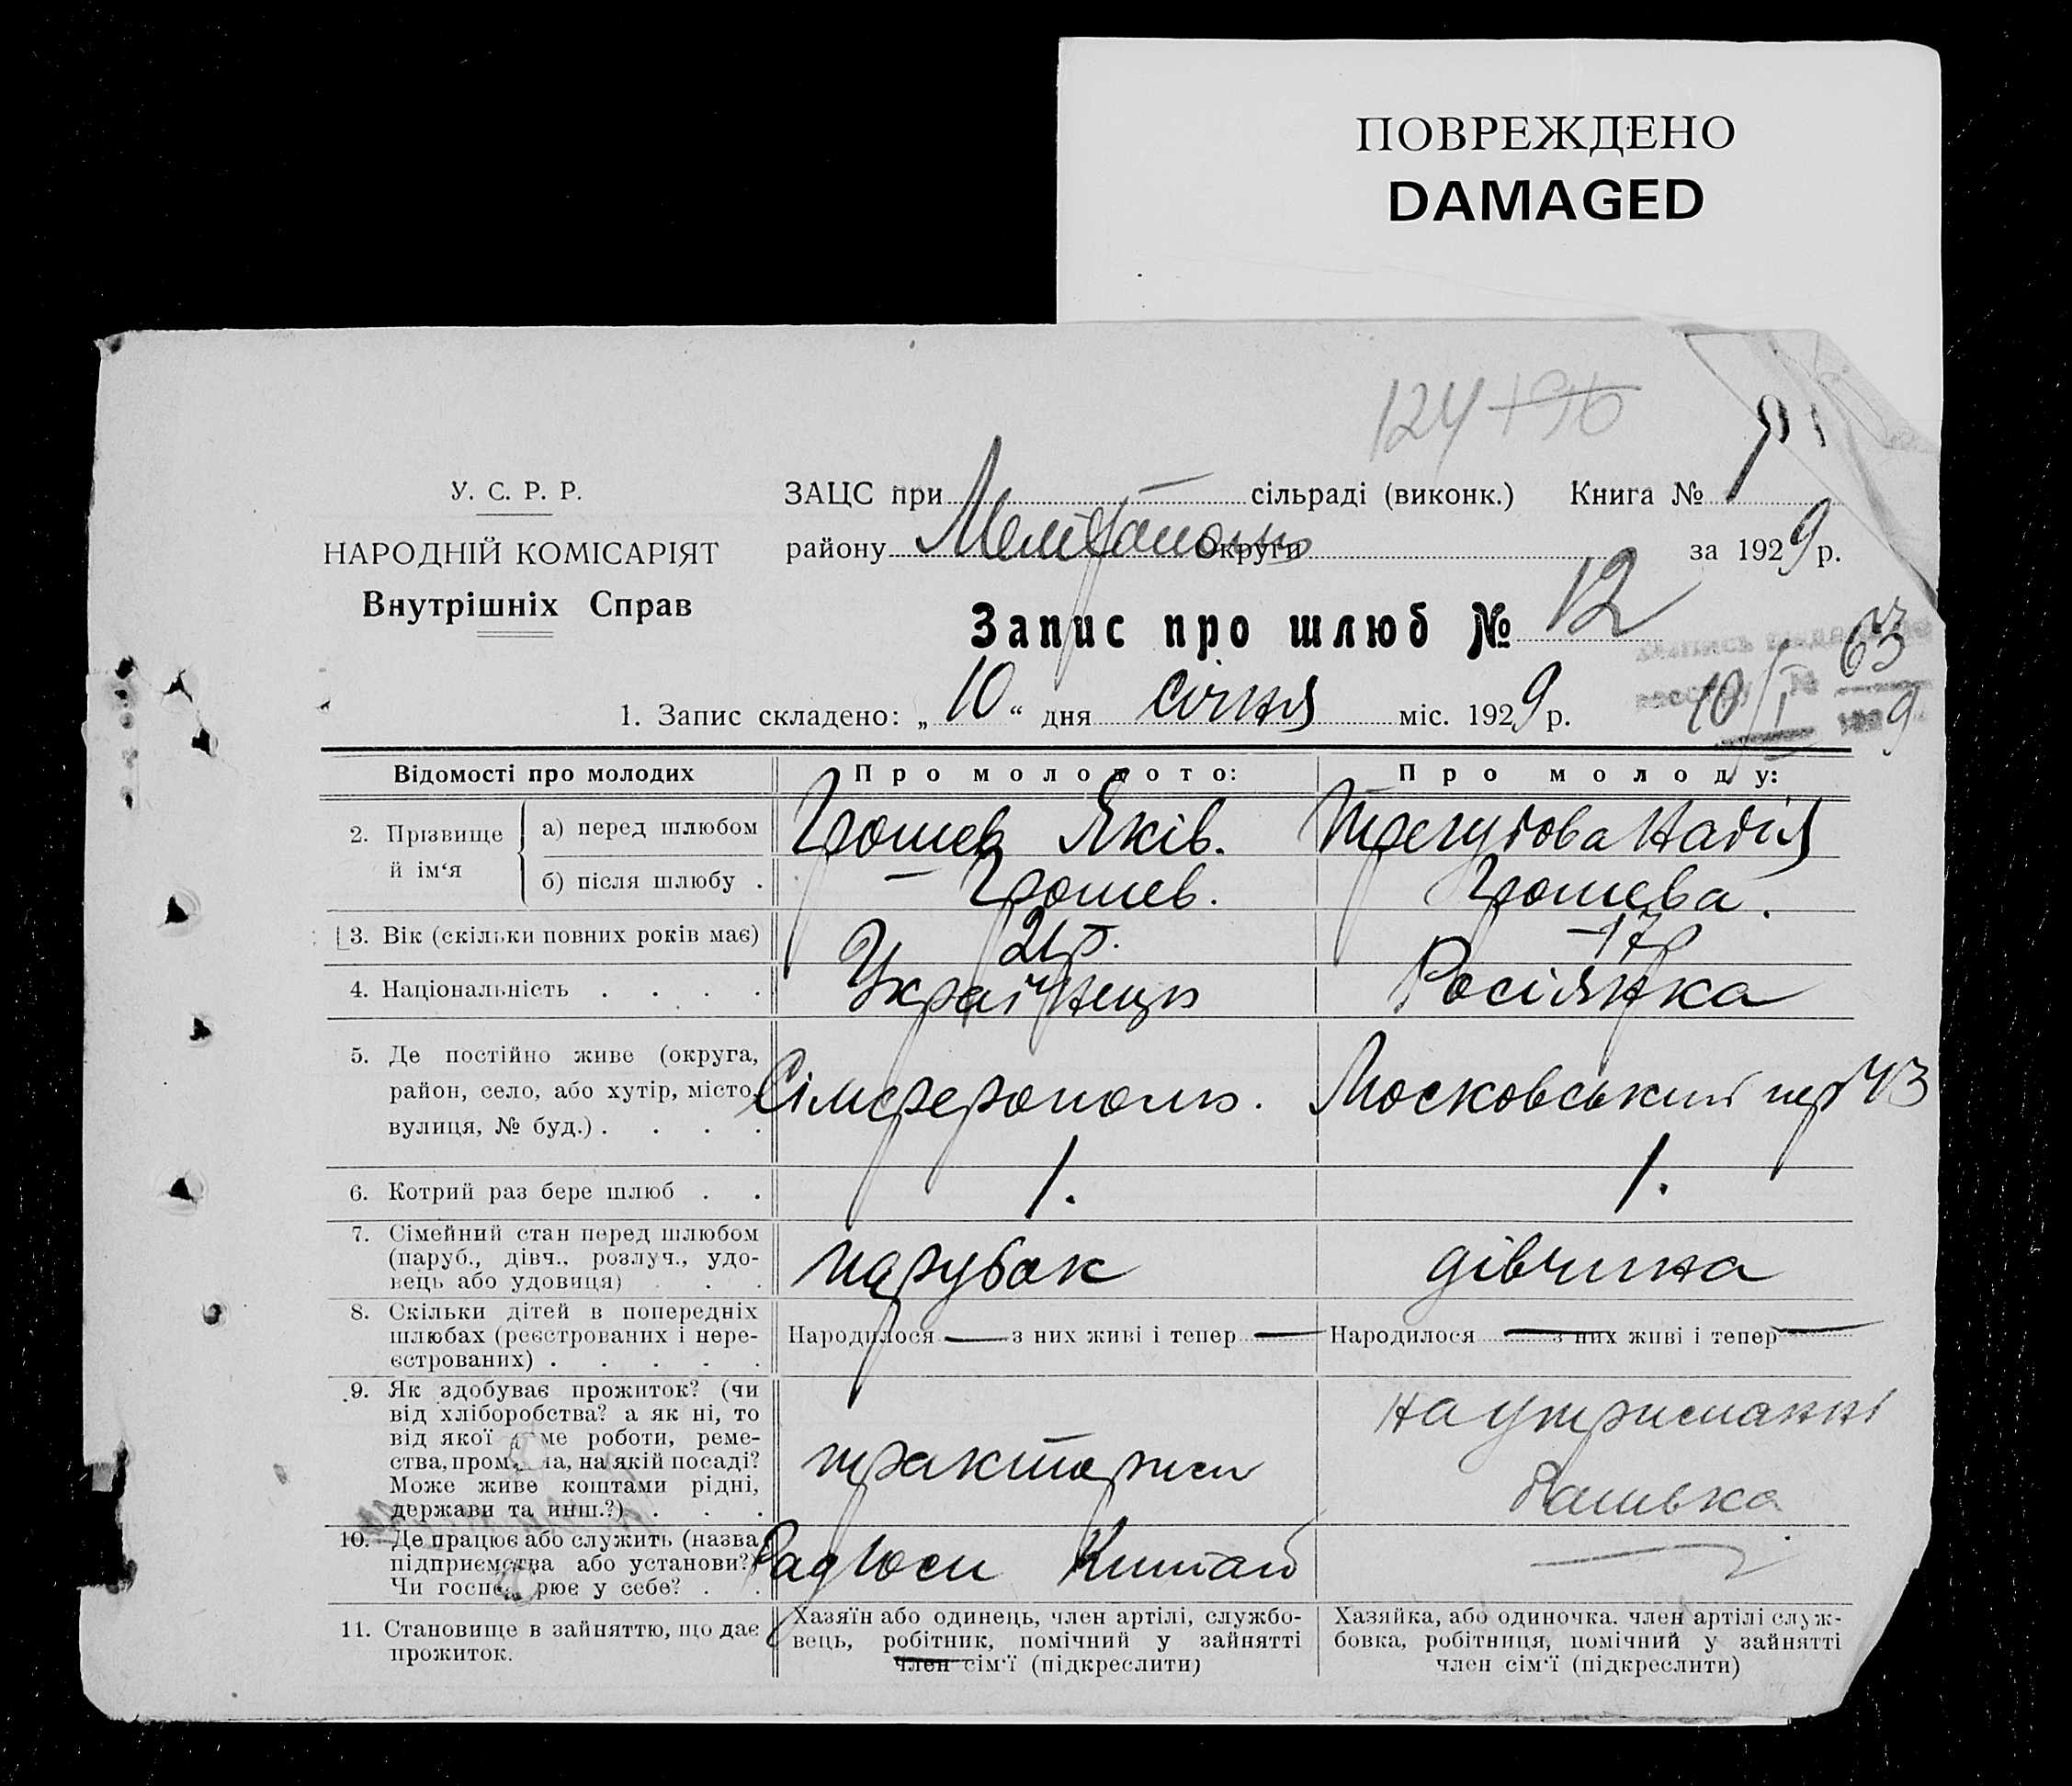 ПОВРЕЖДЕНО
DAMAGED
У. С. Р. Р.
НАРОДНІЙ КОМІСАРІЯТ
Внутрішніх Справ
ЗАЦС при — сільраді (виконк.) Книга № 1
району Мелітополь Округи за 1929 р.
Запис про шлюб № 12
63
1. Запис складено: „10“ дня січня міс. 1929 р.
10/I 9
Відомості про молодих Про молодого: Про молоду:
2. Прізвище й ім‘я
а) перед шлюбом Грошев Яків. Трегубова Надія
б) після шлюбу . — Грошев. Грошева.
3. Вік (скільки повних років має) 21 р. 17 р
4. Національність . . . . Українець Росіянка
5. Де постійно живе (округа,
район, село, або хутір, місто,
вулиця, № буд.) . . . .
Сімферополь. Московський пер 43
6. Котрий раз бере шлюб . . 1. 1.
7. Сімейний стан перед шлюбом
(паруб., дівч., розлуч., удо-
вець або удовиця) . . .
парубак дівчина
8. Скільки дітей в попередніх
шлюбах (реєстрованих і нере-
єстрованих) . . . . .
Народилося — з них живі і тепер — Народилося — з них живі і тепер —
9. Як здобуває прожиток? (чи
від хліборобства? а як ні, то
від якої роботи, реме-
ства, на якій посаді?
Може живе коштами рідні,
держави та инш.?) . . .
на утриманні
батька
10. Де працює або служить (назва
підприємства або установи?)
Чи у себе? . .
11. Становище в зайняттю, що дає
прожиток.
Хазяїн або одинець, член артілі, службо-
вець, робітник, помічний у зайнятті
член сім‘ї (підкреслити)
Хазяйка, або одиночка. член артілі служ-
бовка, робітниця, помічний у зайнятті
член сім‘ї (підкреслити)